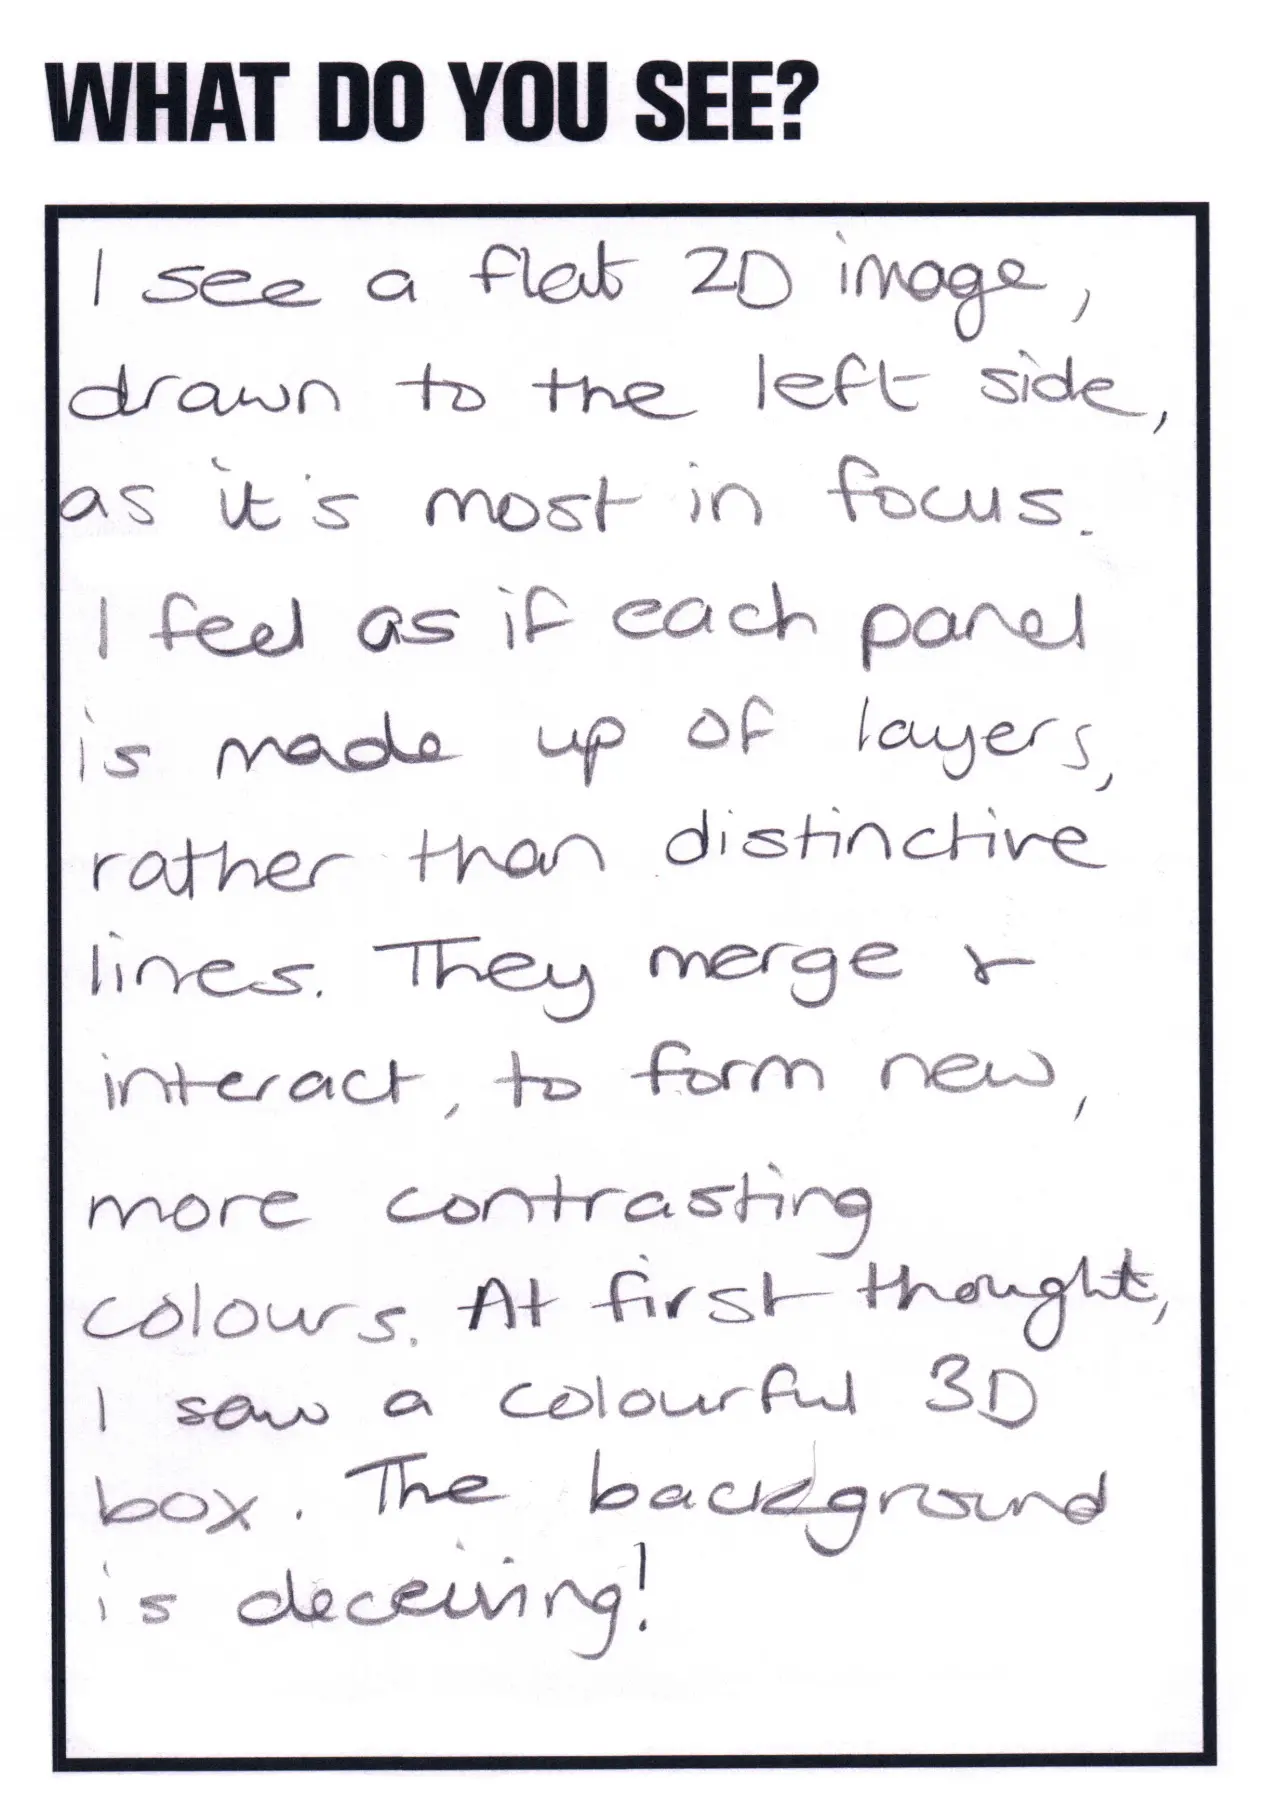 WHAT DO YOU SEE?
I see a flat 2D image,
drawn to the left side,
as it's most in focus.
I feel as if each panel
is made up of layers,
rather than distinctive
lines. They merge &
interact, to form new,
more contrasting
colours. At first thought,
I saw a colourful 3D
box. The background
is deceiving!